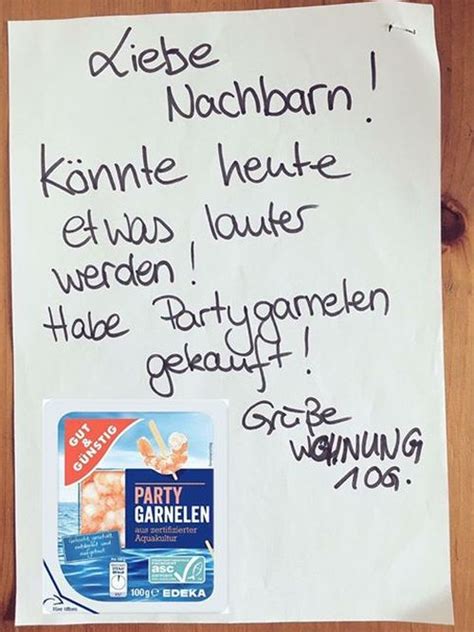 Liebe
Nachbarn!
Könnte heute
etwas lauter
werden!
Habe Partygarnelen
gekauft!
Grüße
WOHNUNG
1OG.
GUT
&
GÜNSTIG
PARTY
GARNELEN
aus zertifizierter
Aquakultur
asc
100g e EDEKA